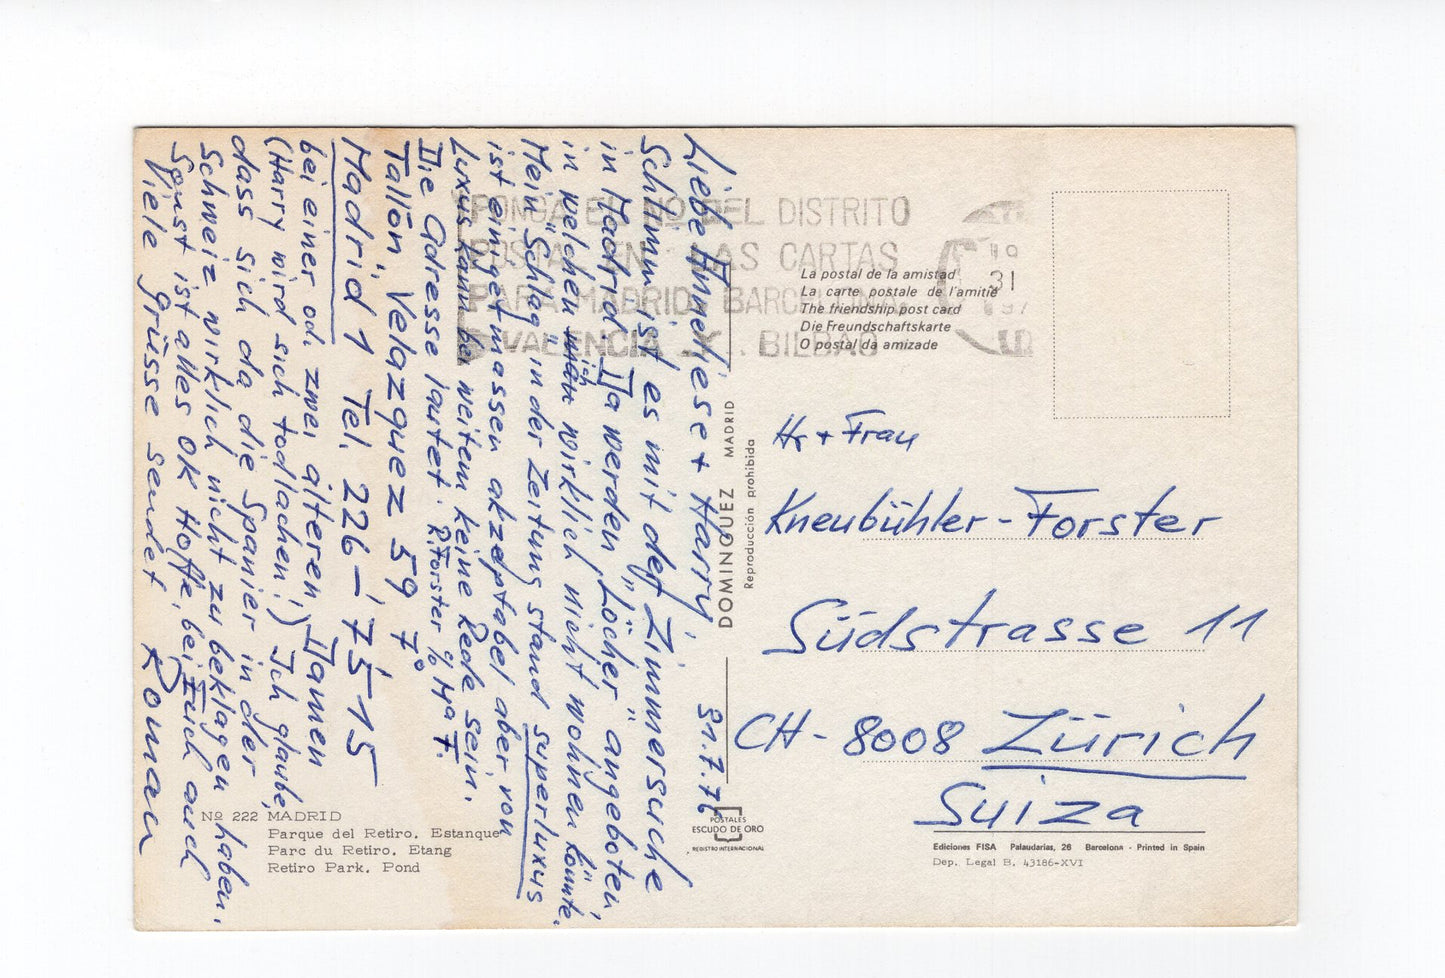 Liebe Anneliese + Harry,
31.7.76
Schlimm ist es mit der Zimmersuche
in Madrid. Da werden "Löcher" angeboten,
in welchen man ich wirklich nicht wohnen könnte.
Mein "Schlag" in der Zeitung stand superluxus
ist eingemessen akzeptabel aber, von
Luxus kann bei weitem keine Rede sein.
Die Adresse lautet: R. Forster % Mª F.
Tallón, Velazquez 59 7º
Madrid 1 Tel. 226-75-15
bei einer od. zwei älteren Damen
(Harry wird sich todlachen!) Ich glaube,
dass sich da die Spanier in der
Schweiz wirklich nicht zu beklagen haben.
Sonst ist alles OK Hoffe, bei Euch auch
Viele Grüsse sendet Roman
PONGA EL Nº DEL DISTRITO
POSTAL EN LAS CARTAS
PARA MADRID, BARCELONA,
VALENCIA Y BILBAO
31
La postal de la amistad
La carte postale de l'amitié
The friendship post card
Die Freundschaftskarte
O postal da amizade
DOMINGUEZ MADRID
Reproducción prohibida
Hr + Frau
Kneubühler-Forster
Südstrasse 11
CH-8008 Zürich
Suiza
Nº 222 MADRID
Parque del Retiro. Estanque
Parc du Retiro. Etang
Retiro Park. Pond
POSTALES
ESCUDO DE ORO
REGISTRO INTERNACIONAL
Ediciones FISA Palaudarias, 26 Barcelona - Printed in Spain
Dep. Legal B. 43186-XVI